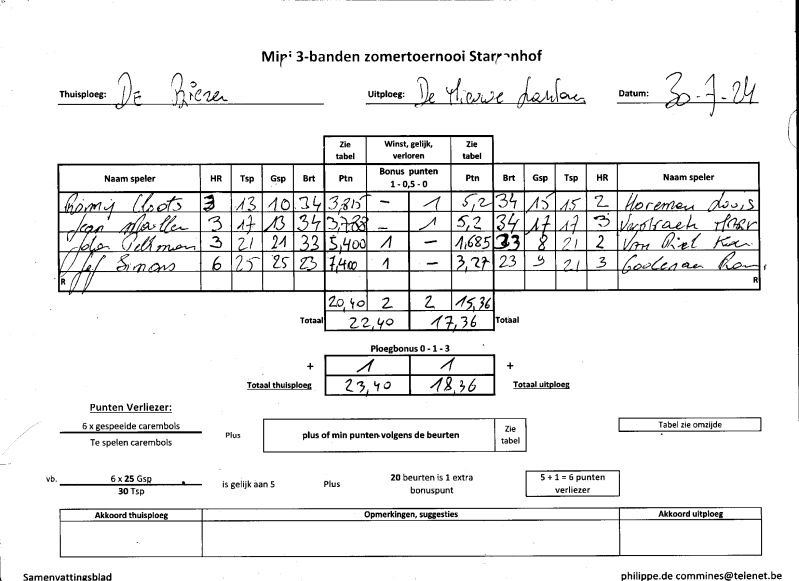 Mini 3-banden zomertoernooi Starrenhof
Thuisploeg: De Biezen Uitploeg: De Nieuwe Datum: 30-7-24
Zie tabel Winst, gelijk, verloren Zie tabel
Naam speler HR Tsp Gsp Brt Ptn Bonus punten 1 - 0,5 - 0 Ptn Brt Gsp Tsp HR Naam speler
3 13 10 34 3,815 – 1 5,2 34 15 15 2 Horeman Louis
Jean 3 17 13 34 – 1 5,2 34 17 17 3
3 21 21 33 5,400 1 – 1,685 33 8 21 2 Van
Jef Simons 6 25 25 23 7,400 1 – 3,27 23 9 21 3
R R
20,40 2 2 15,36
Totaal 22,40 17,36 Totaal
Ploegbonus 0 - 1 - 3
+ 1 1 +
Totaal thuisploeg 23,40 18,36 Totaal uitploeg
Punten Verliezer:
6 x gespeelde carembols
Te spelen carembols
Plus plus of min punten volgens de beurten Zie tabel
Tabel zie omzijde
vb. 6 x 25 Gsp
30 Tsp
is gelijk aan 5 Plus 20 beurten is 1 extra bonuspunt 5 + 1 = 6 punten verliezer
Akkoord thuisploeg Opmerkingen, suggesties Akkoord uitploeg
Samenvattingsblad philippe.de commines@telenet.be